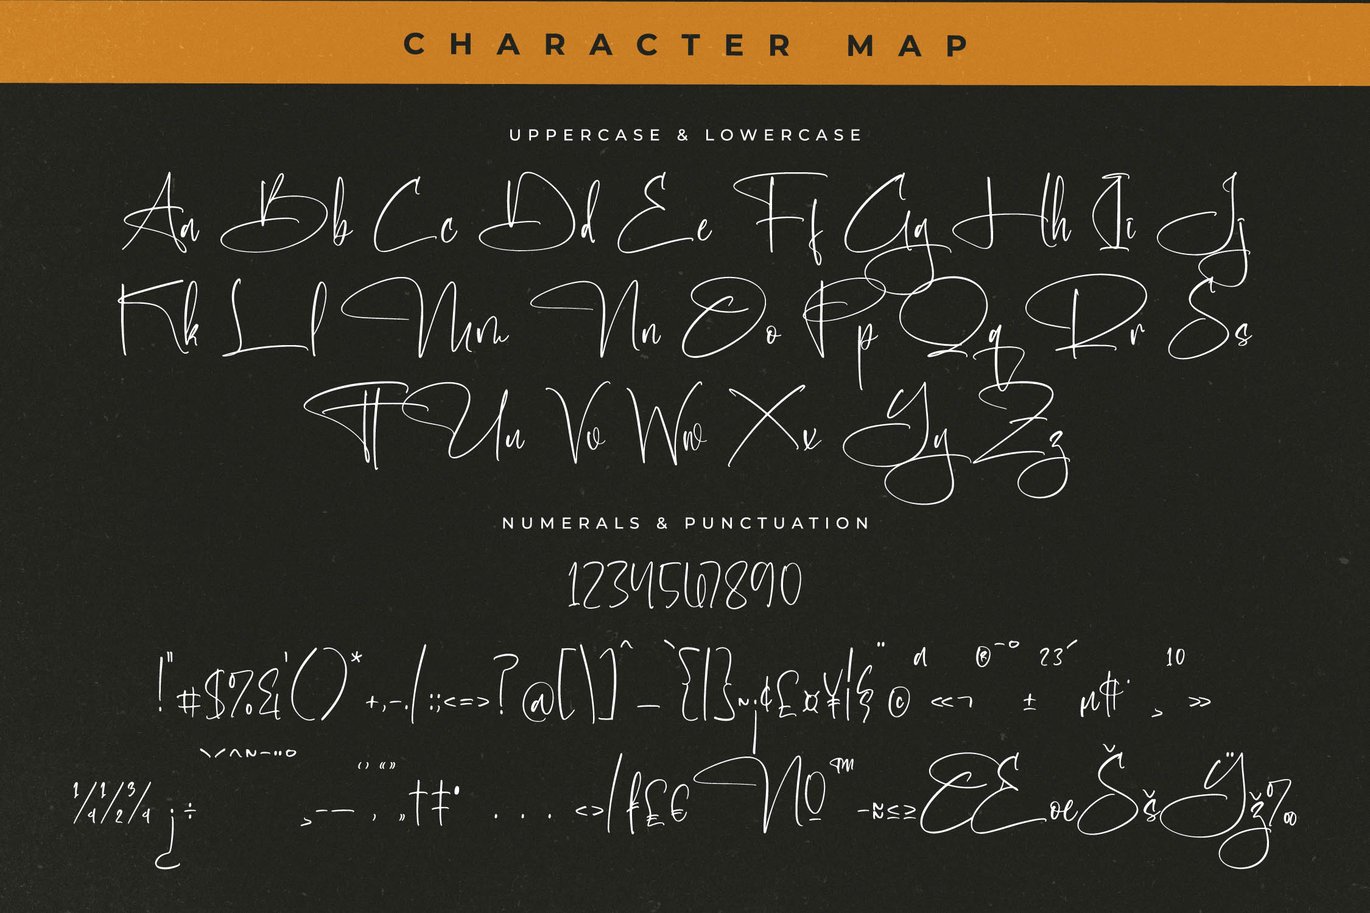 CHARACTER MAP
UPPERCASE & LOWERCASE
Aa Bb Cc Dd Ee Ff Gg Hh Ii Jj
Kk Ll Mm Nn Oo Pp Qq Rr Ss
Tt Uu Vv Ww Xx Yy Zz
NUMERALS & PUNCTUATION
1234567890
!"#$%&'()*+,-./:;<=>?@[\]^_`{|}~¡¢£¤¥¦§¨©ª«¬®¯°±²³´µ¶·¸¹º»
¼½¾¿÷ ‚ „ †‡• . . . ‹›⁄₣₤€№™−≈≤≥ŒœŠšŸž‰